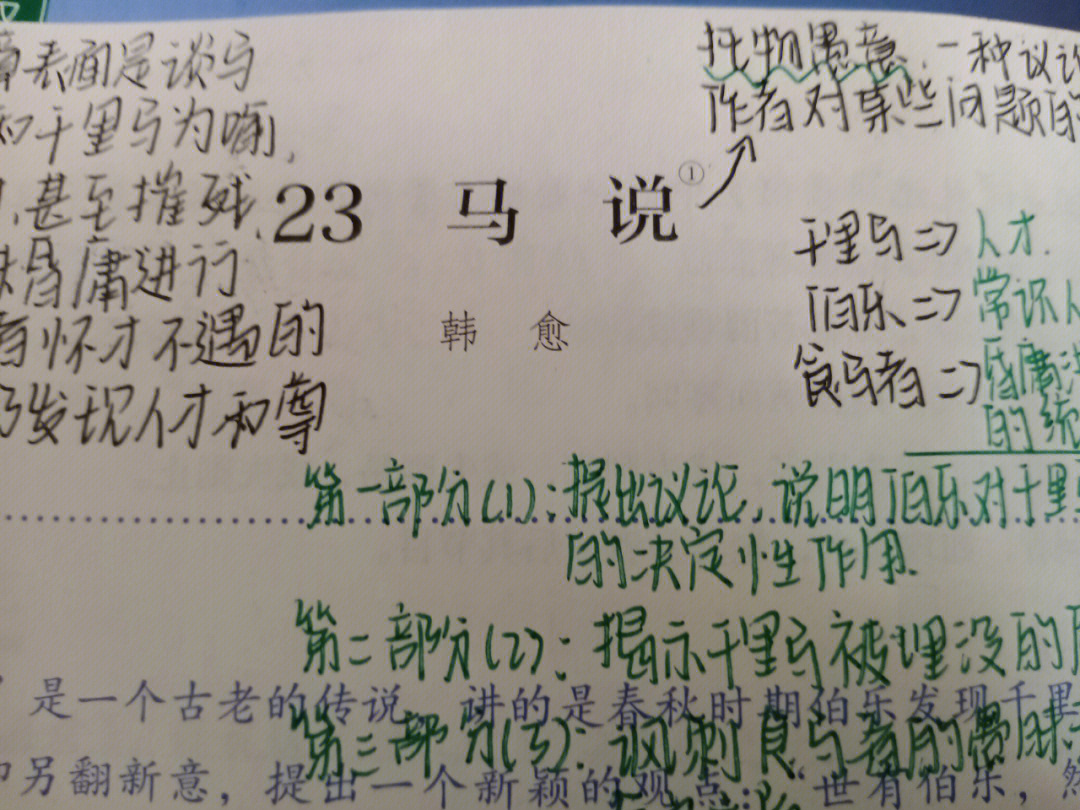 章表面是谈马
和千里马为喻,
,甚至摧残,
昏庸进行
有怀才不遇的
发现人才和尊
托物愚意 一种议论
作者对某些问题的
23 马说①
韩愈
千里马=>人才.
伯乐=>常识人
食马者=>昏庸
的统
第一部分(1):提出议论,说明伯乐对千里
的决定性作用.
第二部分(2):揭示千里马被埋没的
是一个古老的传说 讲的是春秋时期伯乐发现千里
第三部分(3):讽刺食马者的愚
另翻新意,提出一个新颖的观点:“世有伯乐,然